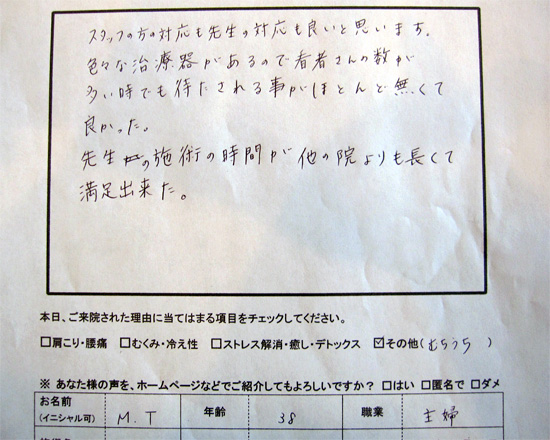 スタッフの方の対応も先生の対応も良いと思います。
色々な治療器があるので看者さんの数が
多い時でも待たされる事がほとんど無くて
良かった。
先生の施術の時間が他の院よりも長くて
満足出来た。
本日、ご来院された理由に当てはまる項目をチェックしてください。
□肩こり・腰痛 □むくみ・冷え性 □ストレス解消・癒し・デトックス ☑その他(むちうち)
※ あなた様の声を、ホームページなどでご紹介してもよろしいですか? □はい □匿名で □ダメ
お名前 (イニシャル可) M.T 年齢 38 職業 主婦